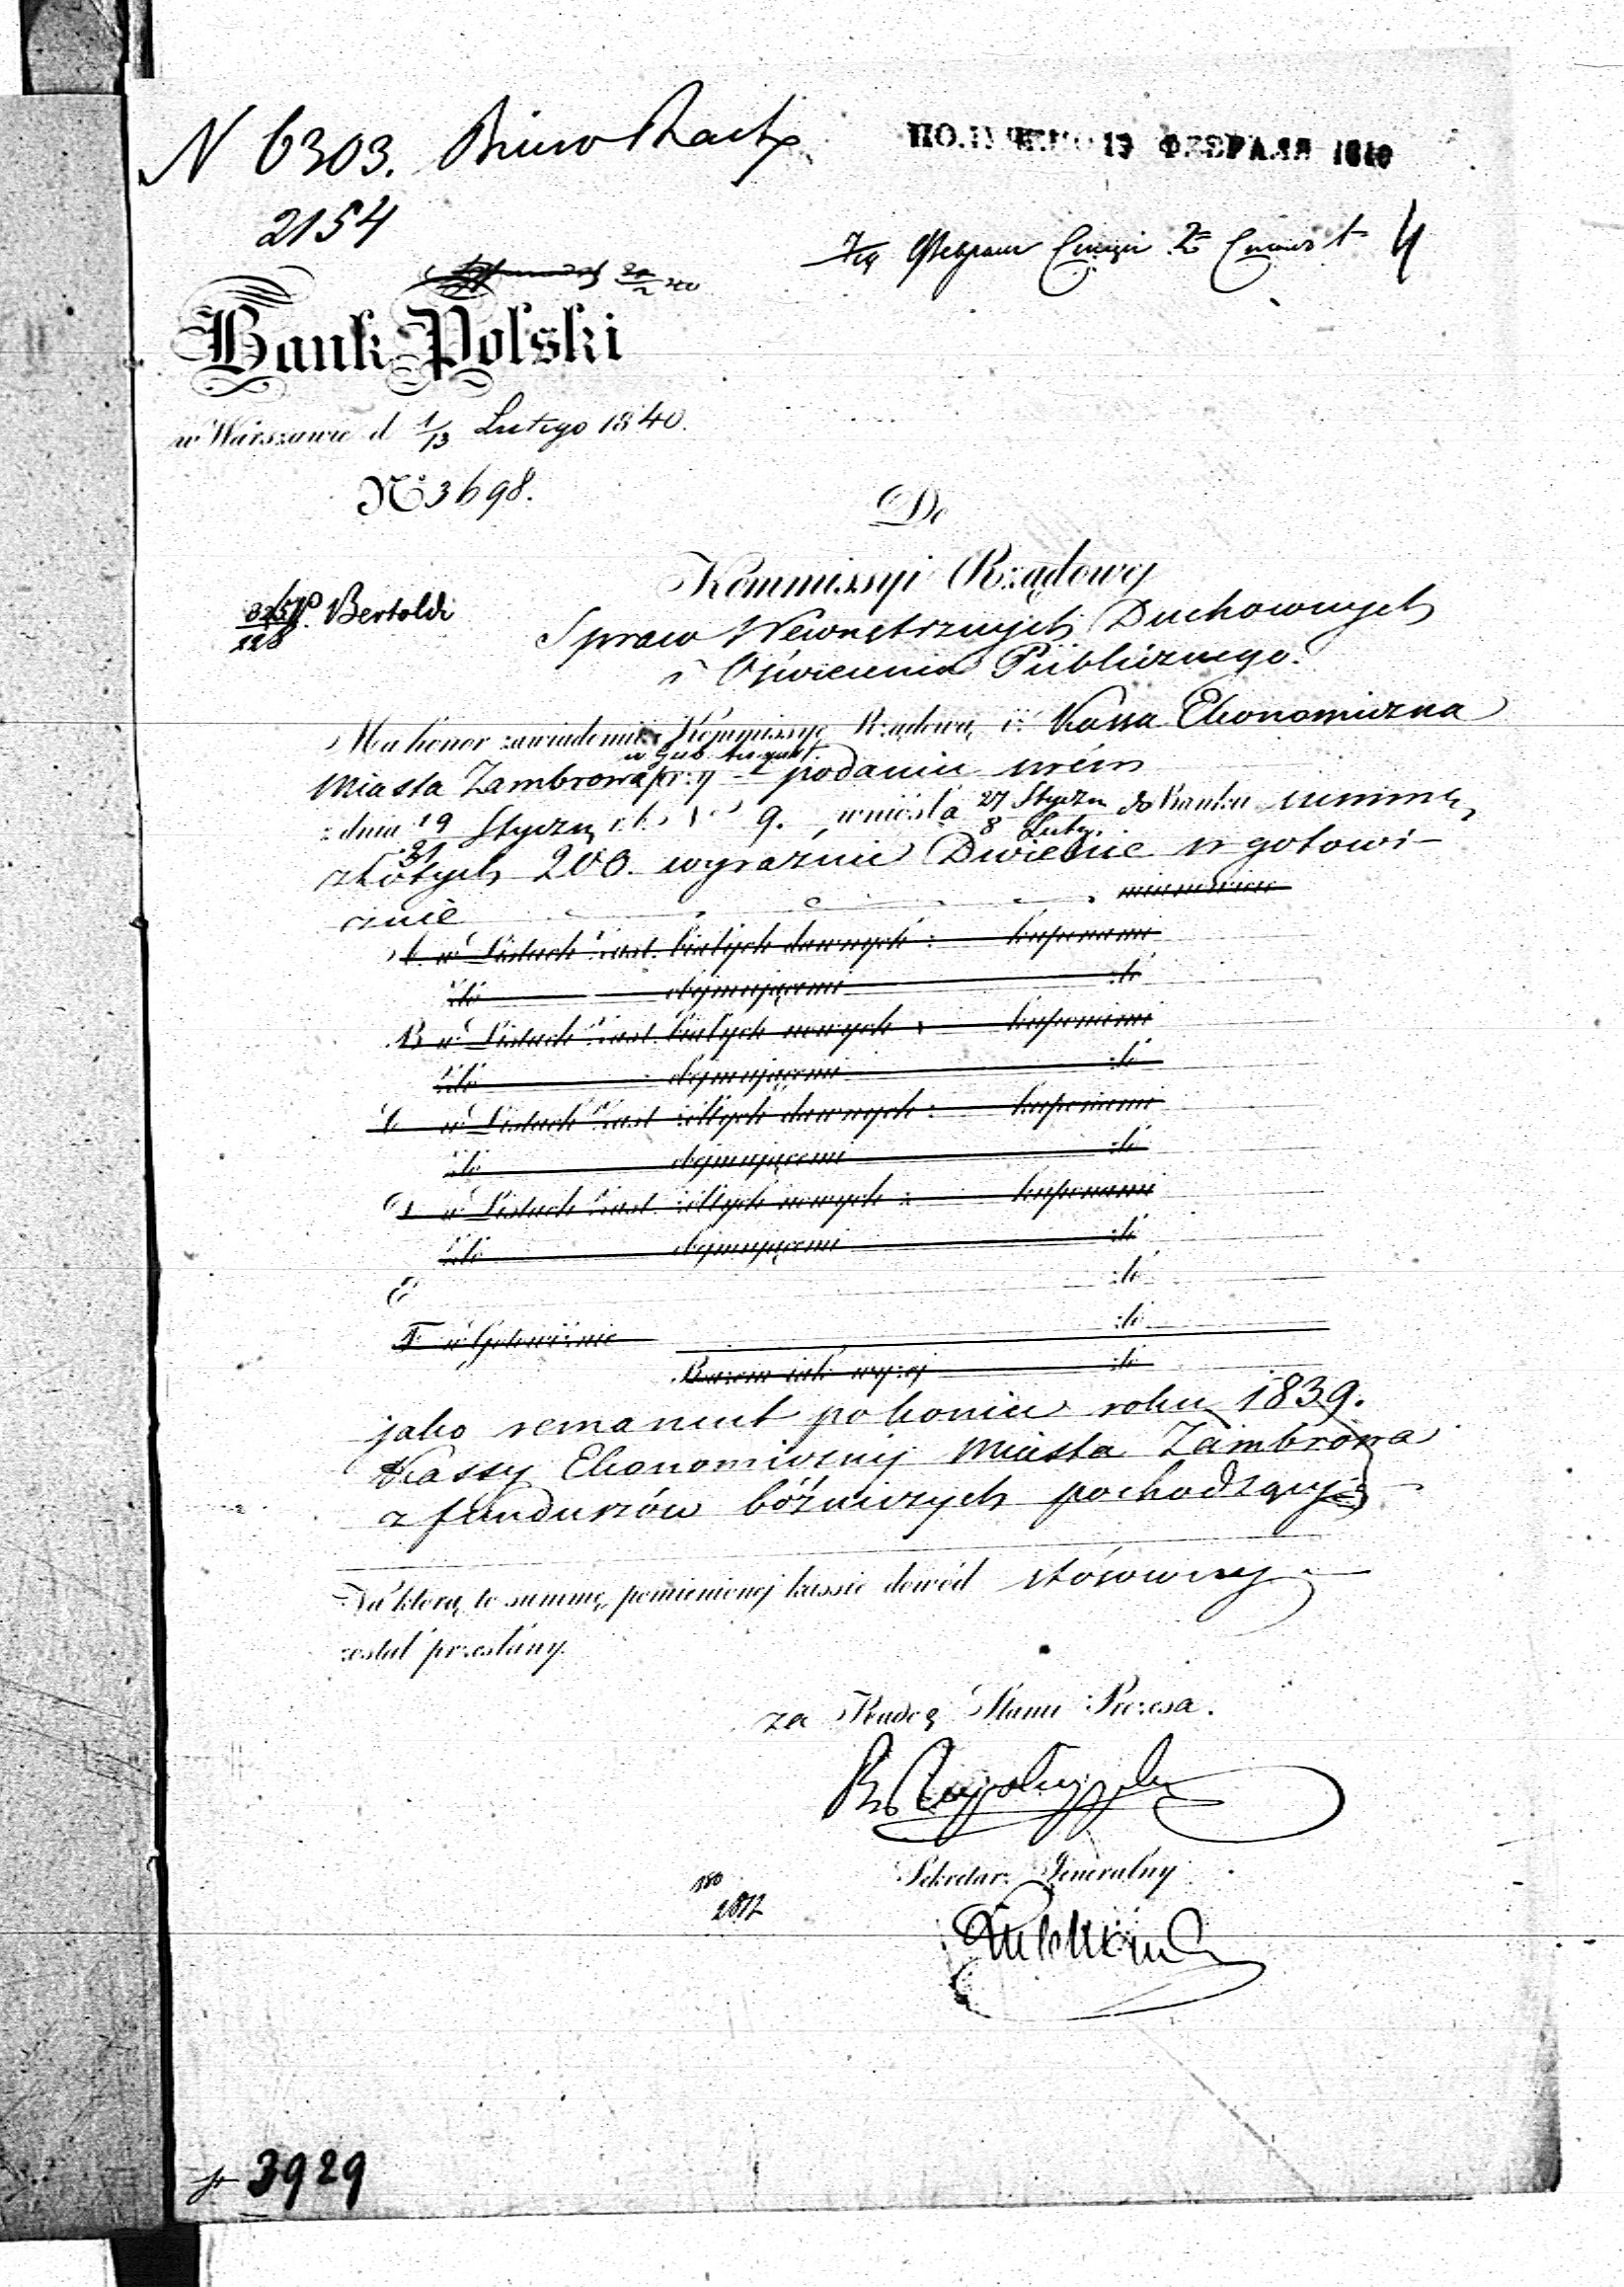 N 6303. Biuro Rach
2154
ПОЛУЧЕНО 13 ФЕВРАЛЯ 1840
4
Bank Polski
w Warszawie d 1/13 Lutego 1840.
No 3698.
Do
Kommissyi Rządowej
Bertoldi
128
Spraw Wewnętrznych Duchownych
i Oświecenia Publicznego.
Ma honor zawiadomić Kommissyę Rządową iż Kassa Ekonomiczna
w Gub. August.
Miasta Zambrowa przy podaniu swém
z dnia 19/31 Styczn r. b. No 9. wniosła 27 Styczn/8 Luteg. do Banku summę
złotych 200. wyraźnie Dwieście w gotowi-
znie mianowicie
A w Listach Zast. białych dawnych z kuponami
ilo obejmującemi zło
B w Listach Zast. białych nowych z kuponami
ilo obejmującemi zło
C w Listach Zast. żółtych dawnych z kuponami
ilo obejmującemi zło
D w Listach Zast. żółtych nowych z kuponami
ilo obejmującemi zło
E zło
F w Gotowiźnie zło
Razem jak wyżej zło
jako remanent po koniec roku 1839.
Kassy Ekonomicznej Miasta Zambrowa
z funduszów bóżniczych pochodzący
Na którą to summę, pomienionej kassie dowód stósowny
został przesłany.
za Radcę Stanu Prezesa.
Sekretarz Jeneralny
180
2812
3929